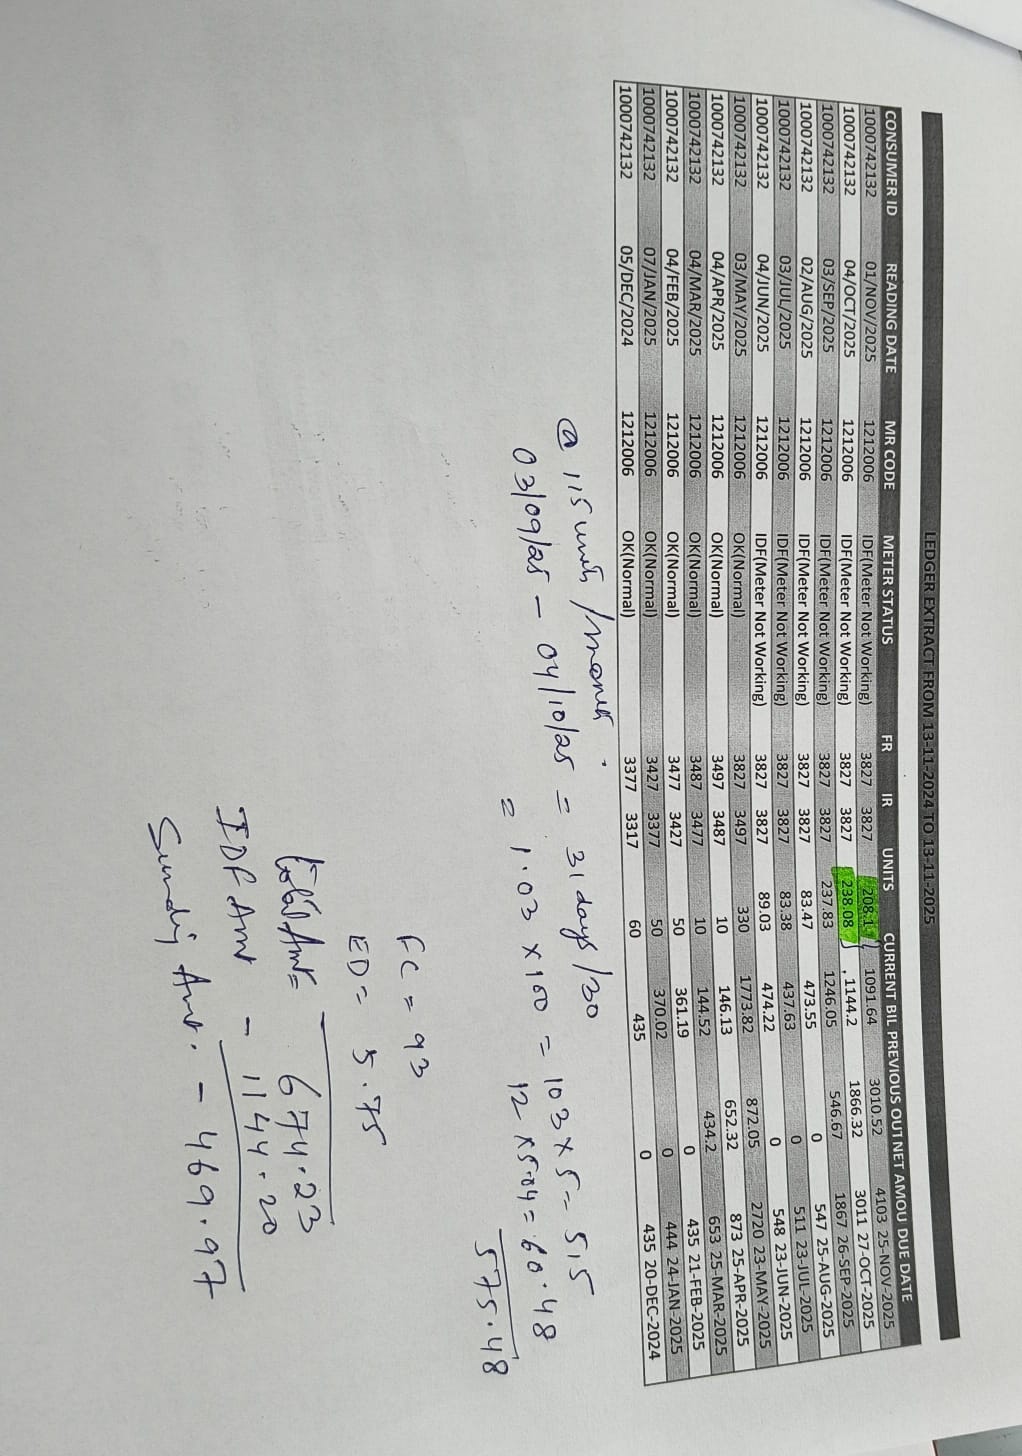 LEDGER EXTRACT FROM 13-11-2024 TO 13-11-2025
CONSUMER ID READING DATE MR CODE METER STATUS FR IR UNITS CURRENT BIL PREVIOUS OUT NET AMOU DUE DATE
1000742132 01/NOV/2025 1212006 IDF(Meter Not Working) 3827 3827 208.1 1091.64 3010.52 4103 25-NOV-2025
1000742132 04/OCT/2025 1212006 IDF(Meter Not Working) 3827 3827 238.08 1144.2 1866.32 3011 27-OCT-2025
1000742132 03/SEP/2025 1212006 IDF(Meter Not Working) 3827 3827 237.83 1246.05 546.67 1867 26-SEP-2025
1000742132 02/AUG/2025 1212006 IDF(Meter Not Working) 3827 3827 83.47 473.55 0 547 25-AUG-2025
1000742132 03/JUL/2025 1212006 IDF(Meter Not Working) 3827 3827 83.38 437.63 0 511 23-JUL-2025
1000742132 04/JUN/2025 1212006 IDF(Meter Not Working) 3827 3827 89.03 474.22 0 548 23-JUN-2025
1000742132 03/MAY/2025 1212006 OK(Normal) 3827 3497 330 1773.82 872.05 2720 23-MAY-2025
1000742132 04/APR/2025 1212006 OK(Normal) 3497 3487 10 146.13 652.32 873 25-APR-2025
1000742132 04/MAR/2025 1212006 OK(Normal) 3487 3477 10 144.52 434.2 653 25-MAR-2025
1000742132 04/FEB/2025 1212006 OK(Normal) 3477 3427 50 361.19 0 435 21-FEB-2025
1000742132 07/JAN/2025 1212006 OK(Normal) 3427 3377 50 370.02 0 444 24-JAN-2025
1000742132 05/DEC/2024 1212006 OK(Normal) 3377 3317 60 435 0 435 20-DEC-2024
@ 115 units /month
03/09/25 - 04/10/25 = 31 days/30
= 1.03 x 100 = 103 x 5 = 515
12 x 5.04 = 60.48
575.48
FC = 93
ED = 5.75
total Amt = 674.23
IDF Amt - 1144.20
Sundry Amt. - 469.97